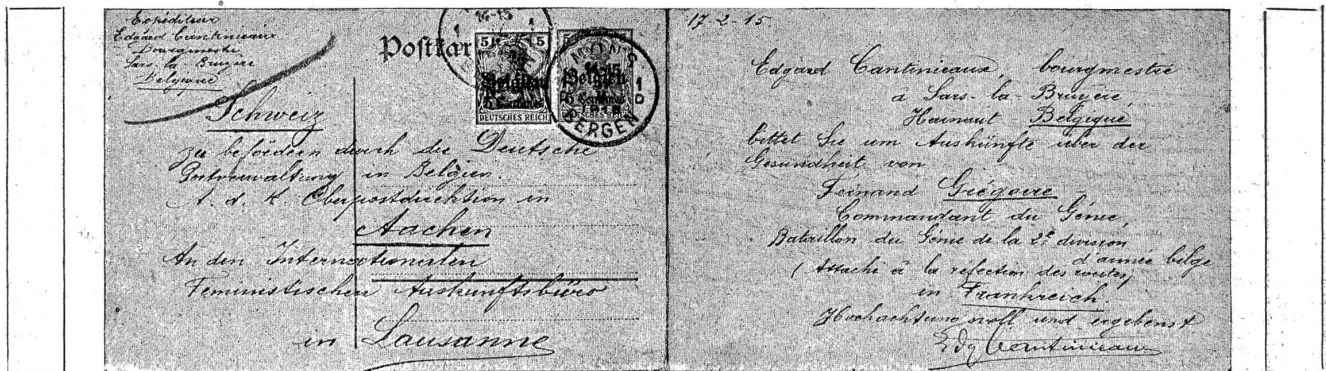 Expéditeur
Edgard Cantinieaux
Bourgmestre
Sars-la-Bruyère
Belgique
Postkar
5 5
Belgien
5 Centimes
DEUTSCHES REICH
5
Belgien
5 Centimes
DEUTSCHES REICH
MONS
BERGEN
Schweiz
zu befördern durch die Deutsche
Postverwaltung in Belgien.
A. d. K. Oberpostdirektion in
Aachen
An den Internationalen
Feministischen Auskunftsbüro
in Lausanne
17-2-15
Edgard Cantinieaux, bourgmestre
à Sars-la-Bruyère,
Hainaut Belgique
bittet Sie um Auskünfte über der
Gesundheit von
Fernand Grégoire
Commandant du Génie,
Bataillon du Génie de la 2e division
d'armée belge
(Attaché à la réfection des routes)
in Frankreich.
Hochachtungsvoll und ergebenst
Edg Cantinieaux